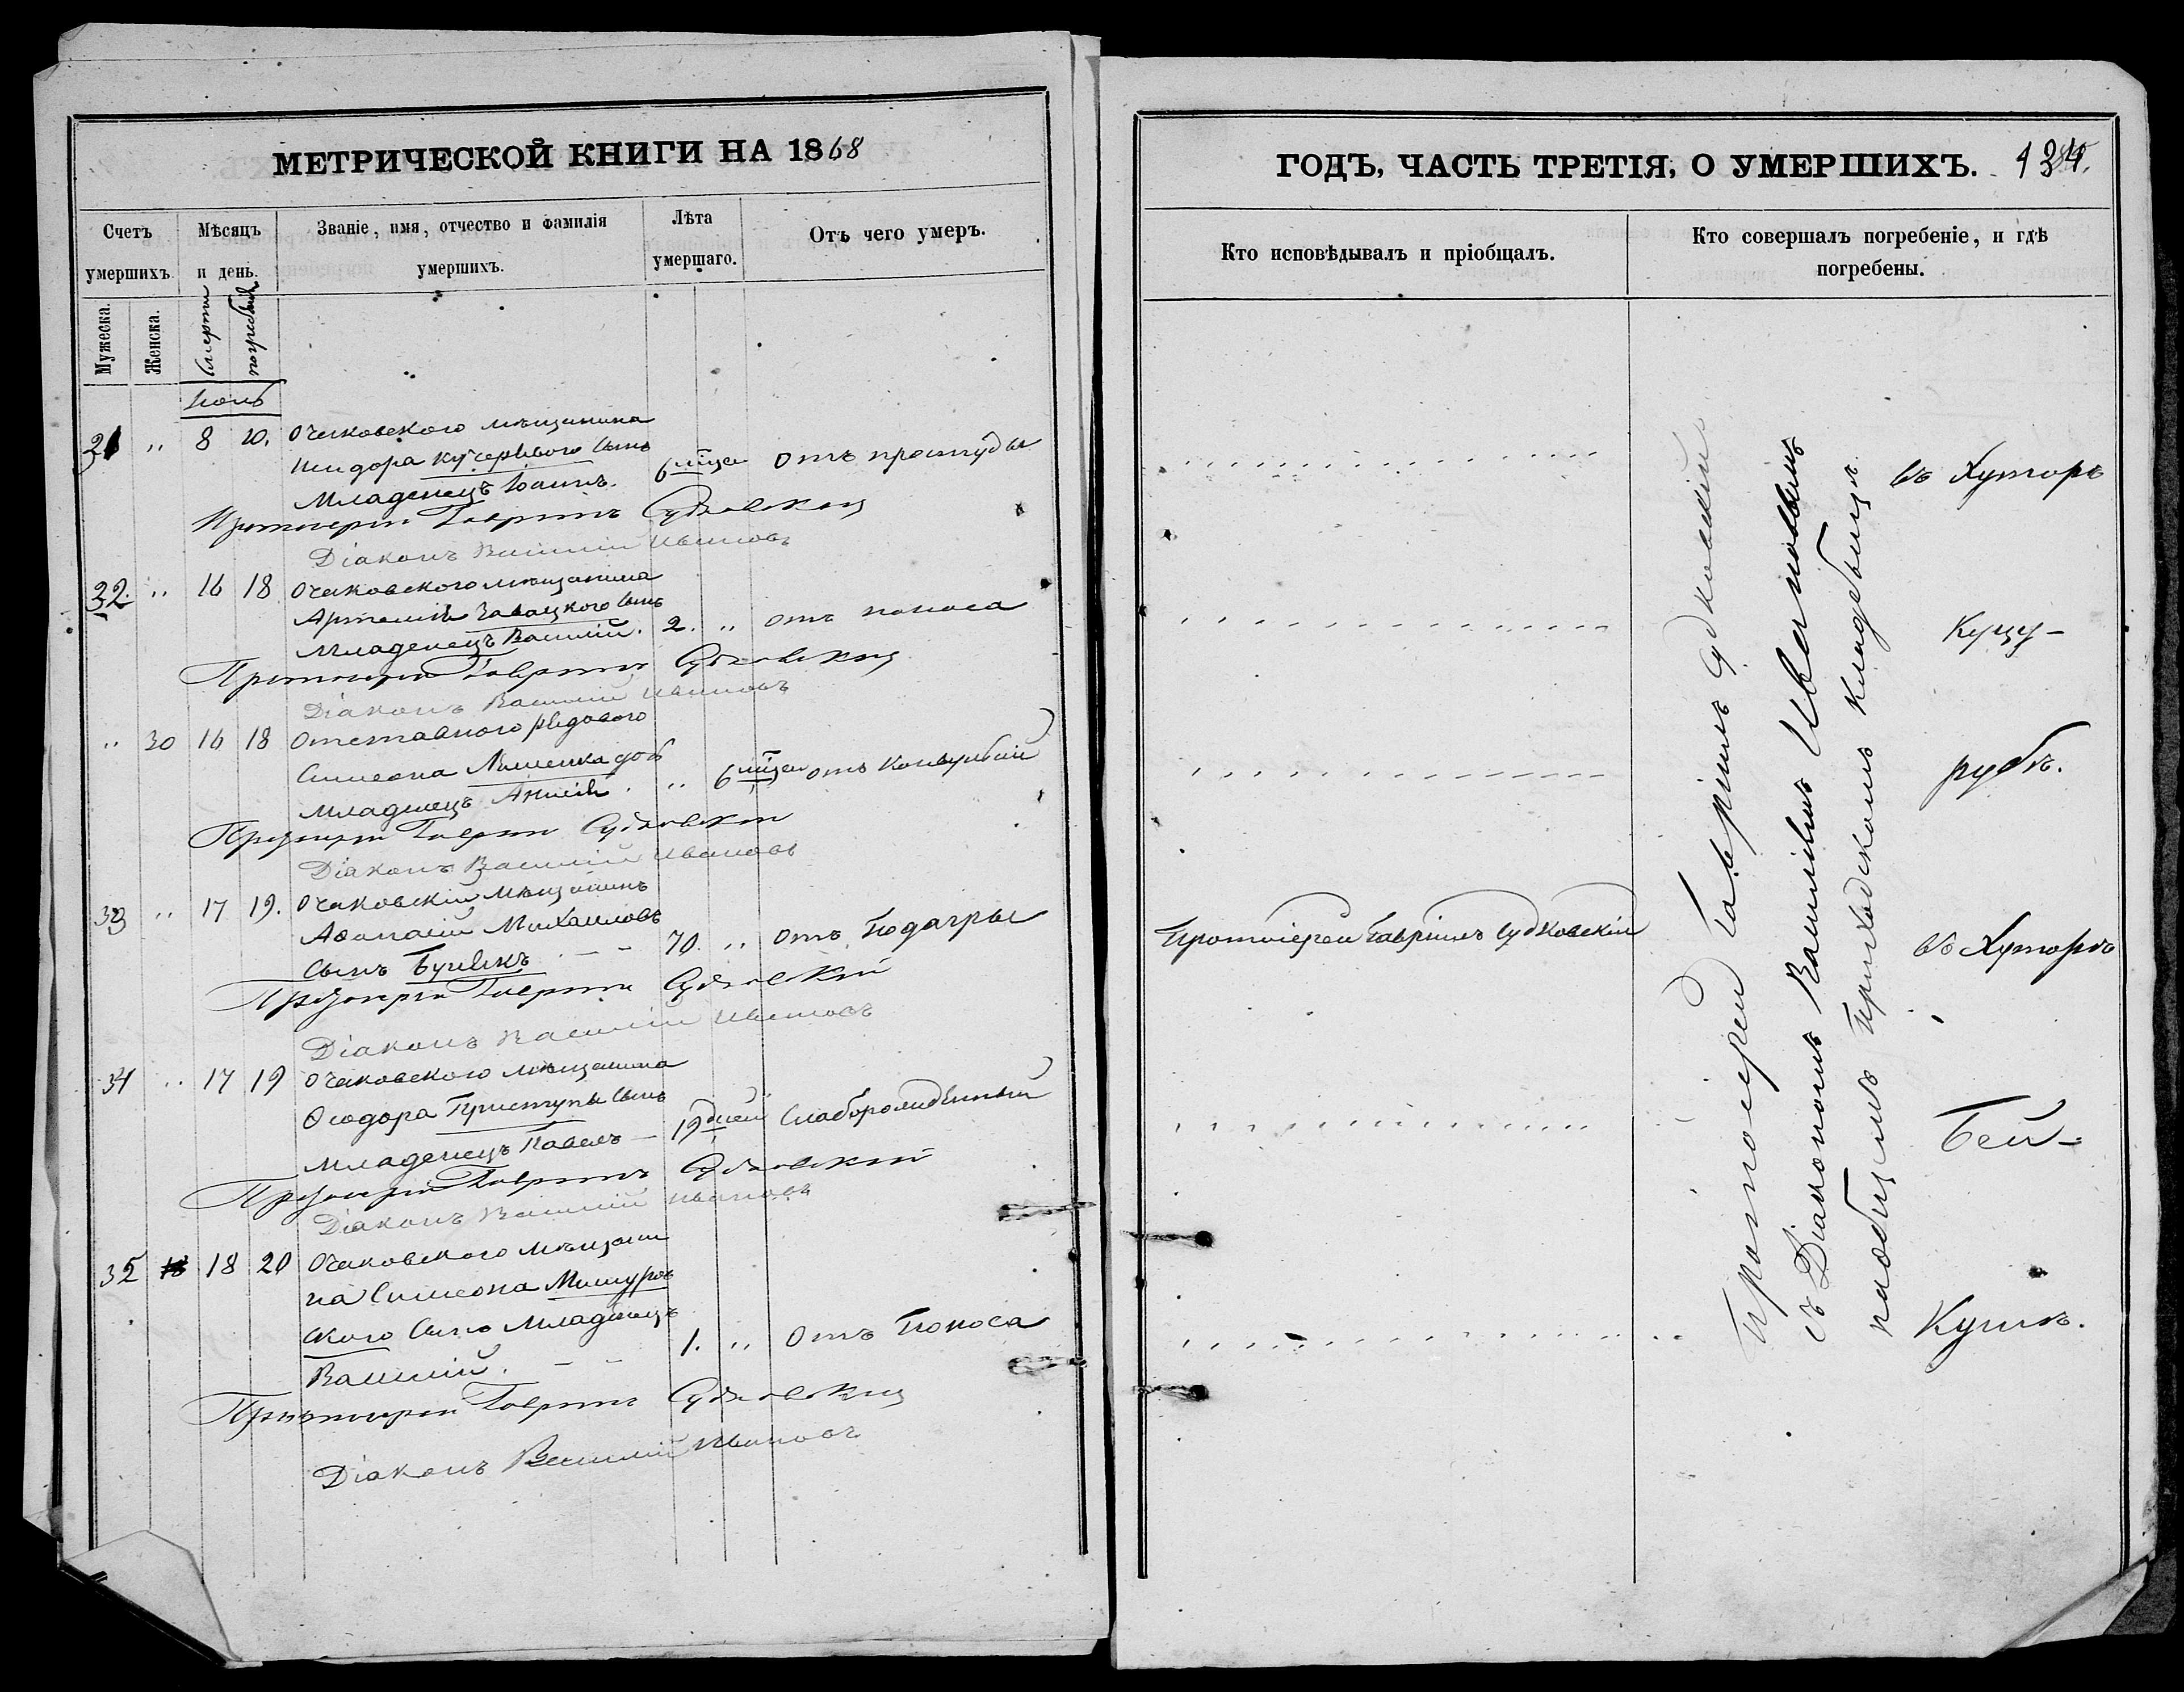 МЕТРИЧЕСКОЙ КНИГИ НА 1868
Счетъ умершихъ.
Мужеска.
Женска.
Мѣсяцъ и день.
Смерти
погребенія
Званіе, имя, отчество и фамилія умершихъ.
Лѣта умершаго.
Отъ чего умеръ.
31 " 8 10. Очаковского мѣщанина
Исидора Кучеряваго сынъ
Младенецъ Іоаннъ. 6 мѣсец отъ простуды
Протоіерей Гавріилъ Судковскій
Діаконъ Василій Ивановъ
32. " 16 18 Очаковского мѣщанина
Артемія Завацкого сынъ
Младенецъ Василій. 2. " отъ поноса
Протоіерей Гавріилъ Судковскій
Діаконъ Василій Ивановъ
" 30 16 18 Отставного рядового
Симеона дочь
Младенецъ " 6 мѣсец отъ Конвульсій
Протоіерей Гавріилъ Судковскій
Діаконъ Василій Ивановъ
33 " 17 19. Очаковскій Мѣщанинъ
Афанасій Михаиловъ
Сынъ 70. " отъ Подагры
Протоіерей Гавріилъ Судковскій
Діаконъ Василій Ивановъ
34 " 17 19 Очаковского мѣщанина
Ѳеодора Приступы сынъ
Младенецъ Павелъ 19 дней Слаборожденный
Протоіерей Гавріилъ Судковскій
Діаконъ Василій Ивановъ
35 18 20 Очаковского мѣщани
на Симеона Мишуров
ского Сынъ Младенецъ
Василій. 1. " отъ Поноса
Протоіерей Гавріилъ Судковскій
Діаконъ Василій Ивановъ
ГОДЪ, ЧАСТЬ ТРЕТІЯ, О УМЕРШИХЪ.
Кто исповѣдывалъ и пріобщалъ.
Кто совершалъ погребеніе, и гдѣ погребены.
Протоіерей Гавріилъ Судковскій
Протоіерей Гавріилъ Судковскій
съ Діакономъ Василіемъ Ивановымъ
на общемъ приходскомъ кладбищѣ.
въ Хуторѣ
Куцу-
рубѣ.
въ Хуторѣ
Бей-
Кушѣ.